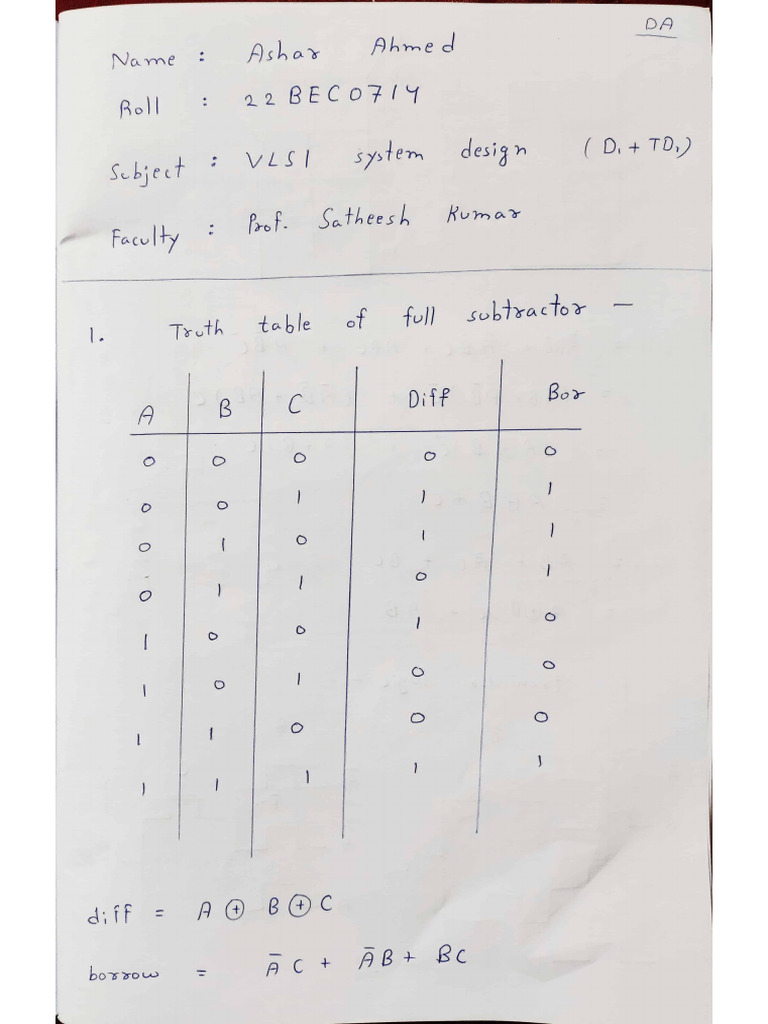 DA
Name : Ashar Ahmed
Roll : 22BEC0714
Subject : VLSI system design (D₁ + TD₁)
Faculty : Prof. Satheesh Kumar
1. Truth table of full subtractor —
A B C Diff Bor
0 0 0 0 0
0 0 1 1 1
0 1 0 1 1
0 1 1 0 1
1 0 0 1 0
1 0 1 0 0
1 1 0 0 0
1 1 1 1 1
diff = A ⊕ B ⊕ C
borrow = A̅ C + A̅ B + BC